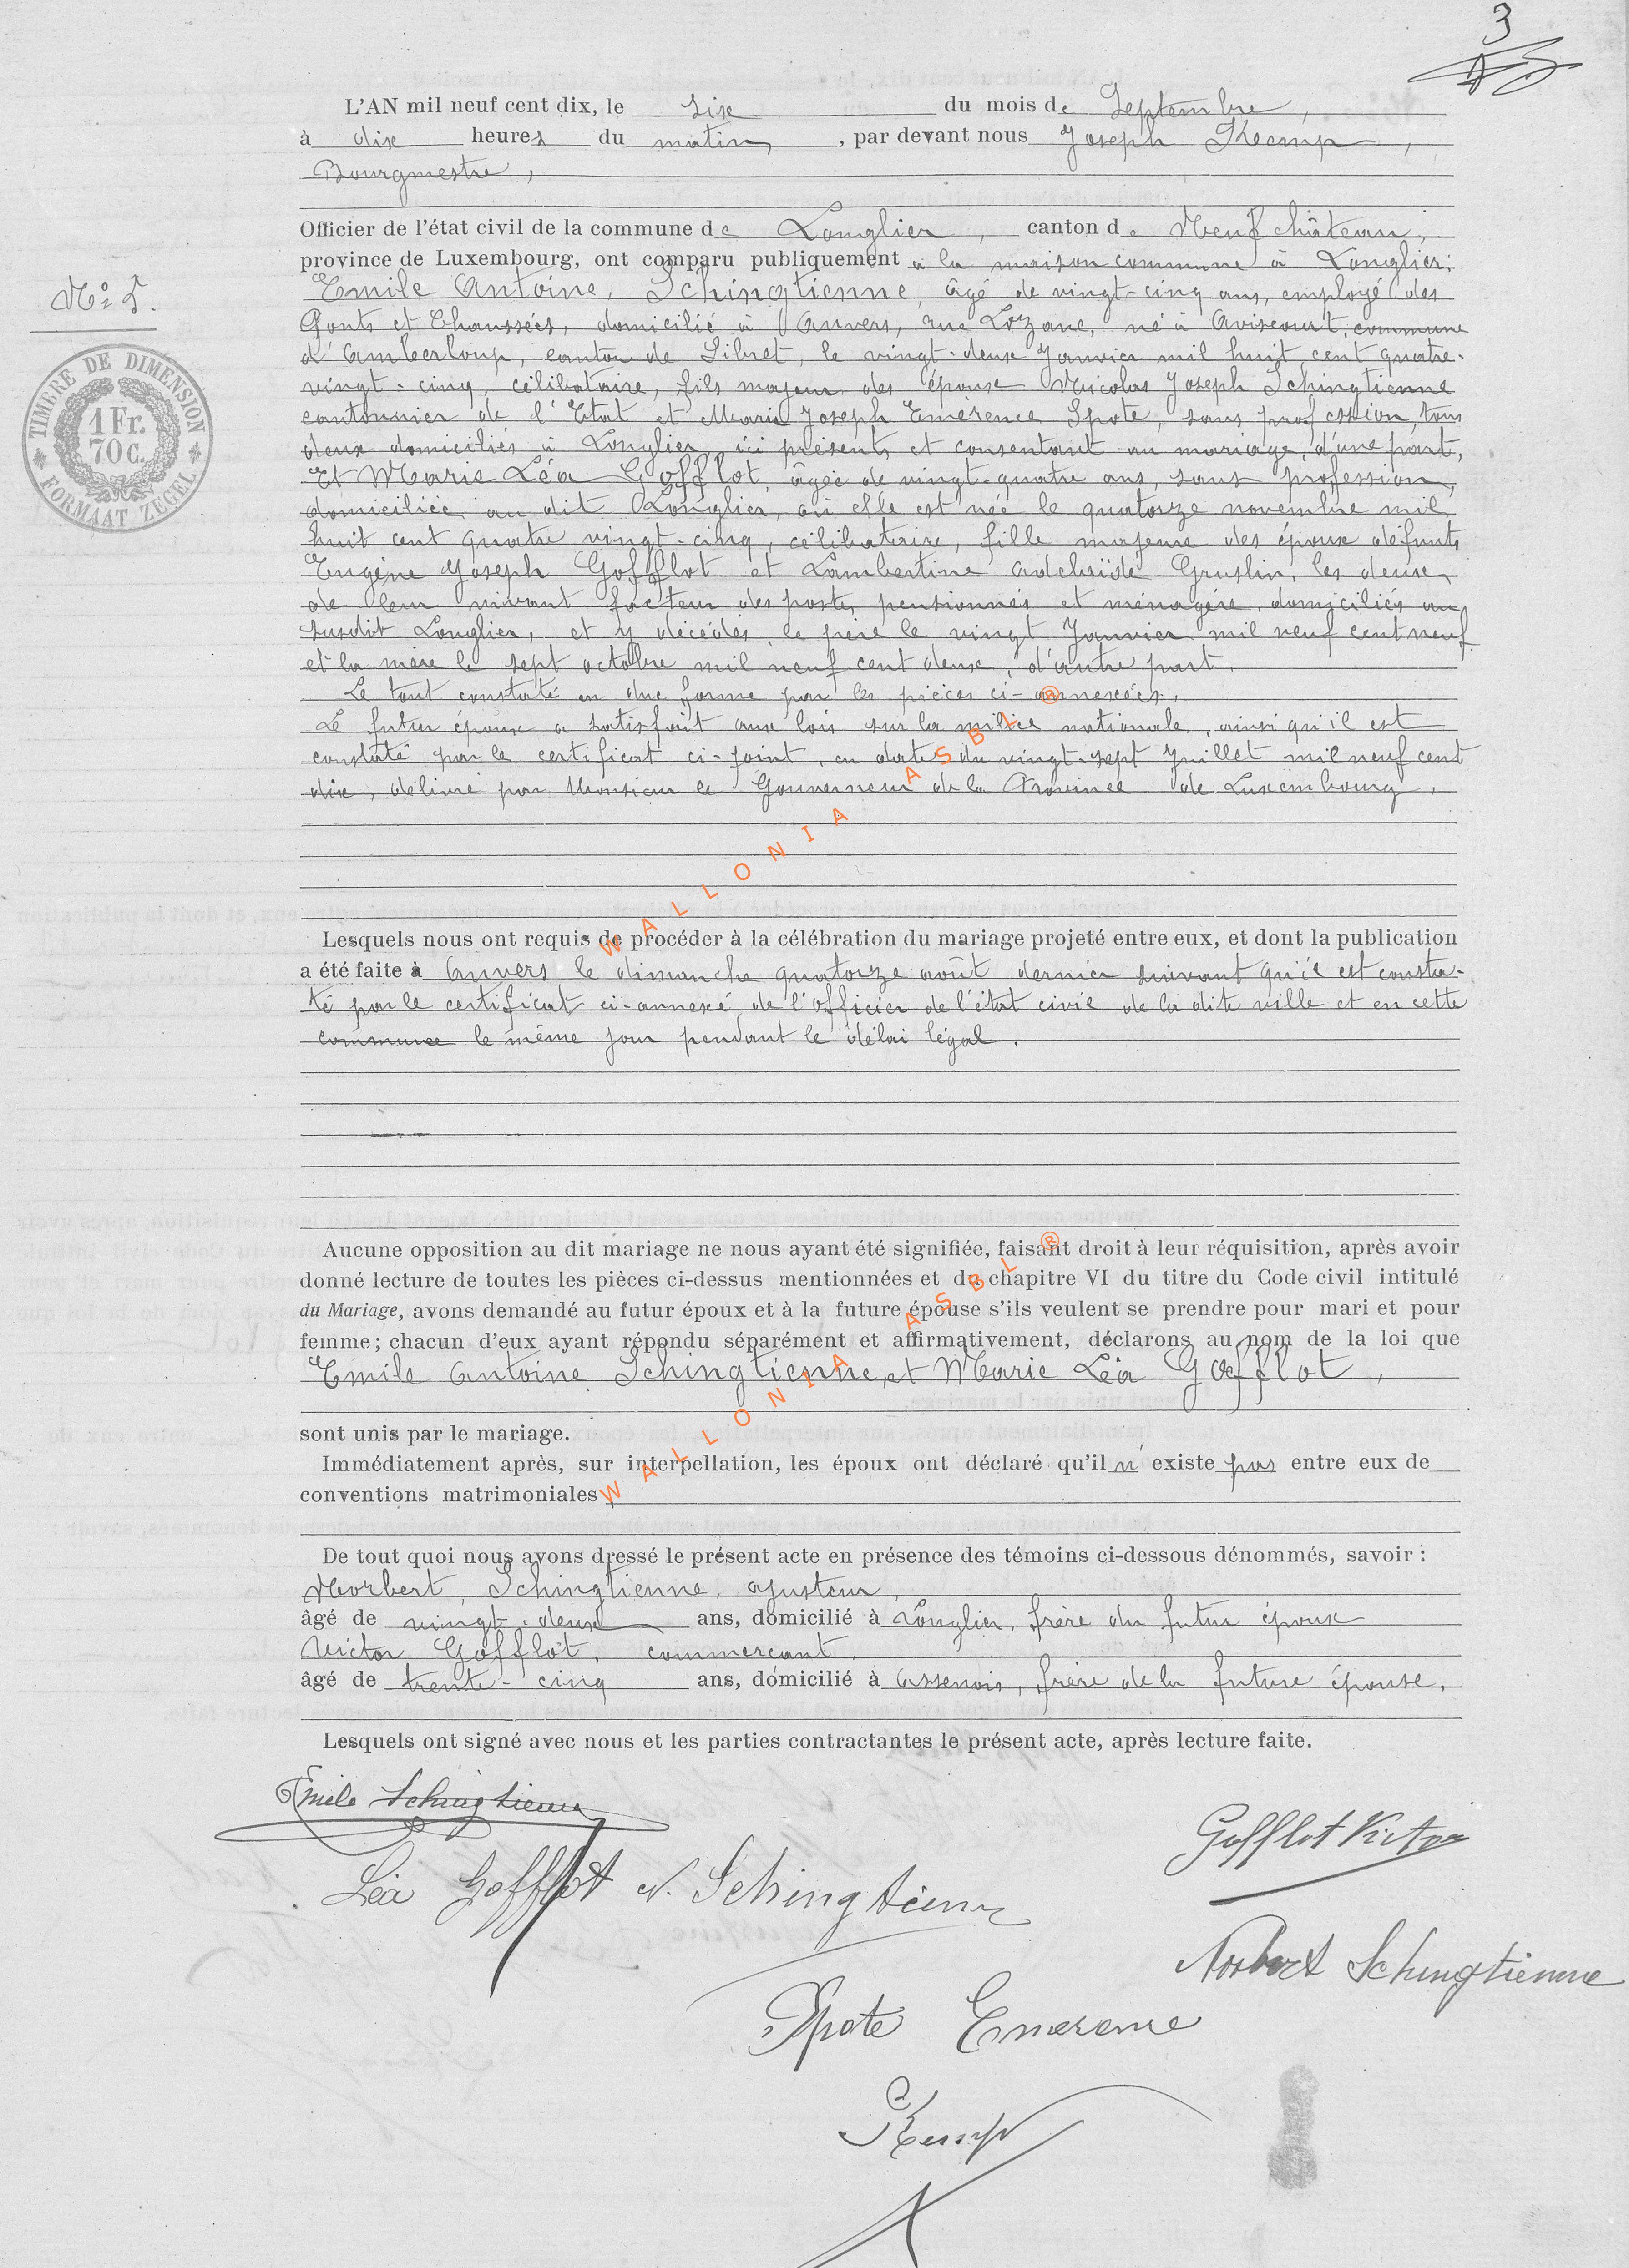 3
L'AN mil neuf cent dix, le six du mois de Septembre,
à dix heures du matin, par devant nous Joseph Kemp,
Bourgmestre,
Officier de l'état civil de la commune de Longlier, canton de Neufchâteau,
province de Luxembourg, ont comparu publiquement à la maison commune à Longlier:
Emile Antoine, Schingtienne, âgé de vingt-cinq ans, employé des
Ponts et Chaussées, domicilié à Anvers, rue Lozane, né à Aviscourt, commune
d'Amberloup, canton de Sibret, le vingt-deux Janvier mil huit cent quatre-
vingt-cinq, célibataire, fils majeur des époux Nicolas Joseph Schingtienne
cantonnier de l'Etat et Marie Joseph Emérence Spote, sans profession, tous
deux domiciliés à Longlier, ici présents et consentant au mariage, d'une part,
Et Marie Léa Gofflot, âgée de vingt-quatre ans, sans profession,
domiciliée au dit Longlier, où elle est née le quatorze novembre mil
huit cent quatre vingt-cinq, célibataire, fille majeure des époux défunts
Eugène Joseph Gofflot et Lambertine Adelaïde Gruslin, les deux
de leur vivant facteur des postes pensionnés et ménagère, domiciliés au
susdit Longlier, et y décédés, le père le vingt Janvier mil neuf cent neuf
et la mère le sept octobre mil neuf cent deux, d'autre part.
Le tout constaté en due forme par les pièces ci-annexées.
Le futur époux a satisfait aux lois sur la milice nationale, ainsi qu'il est
constaté par le certificat ci-joint, en date du vingt-sept Juillet mil neuf cent
dix, délivré par Monsieur le Gouverneur de la Province de Luxembourg.
Lesquels nous ont requis de procéder à la célébration du mariage projeté entre eux, et dont la publication
a été faite à Anvers le dimanche quatorze août dernier suivant qu'il est consta-
té par le certificat ci-annexé de l'officier de l'état civil de la dite ville et en cette
commune le même jour pendant le délai légal.
Aucune opposition au dit mariage ne nous ayant été signifiée, faisant droit à leur réquisition, après avoir
donné lecture de toutes les pièces ci-dessus mentionnées et du chapitre VI du titre du Code civil intitulé
du Mariage, avons demandé au futur époux et à la future épouse s'ils veulent se prendre pour mari et pour
femme; chacun d'eux ayant répondu séparément et affirmativement, déclarons au nom de la loi que
Emile Antoine Schingtienne, et Marie Léa Gofflot,
sont unis par le mariage.
Immédiatement après, sur interpellation, les époux ont déclaré qu'il n'existe pas entre eux de
conventions matrimoniales
De tout quoi nous avons dressé le présent acte en présence des témoins ci-dessous dénommés, savoir :
Norbert, Schingtienne, ajusteur,
âgé de vingt-deux ans, domicilié à Longlier, frère du futur époux
Victor Gofflot, commercant.
âgé de trente-cinq ans, domicilié à Assenois, frère de la future épouse.
Lesquels ont signé avec nous et les parties contractantes le présent acte, après lecture faite.
Emile Schingtienne
Gofflot Victor
Léa Gofflot N. Schingtienne
Norbert Schingtienne
Spote Emerence
Kemp
N° 5.
TIMBRE DE DIMENSION
1 Fr.
70 C.
FORMAAT ZEGEL
WALLONIA ASBL ®
WALLONIA ASBL ®